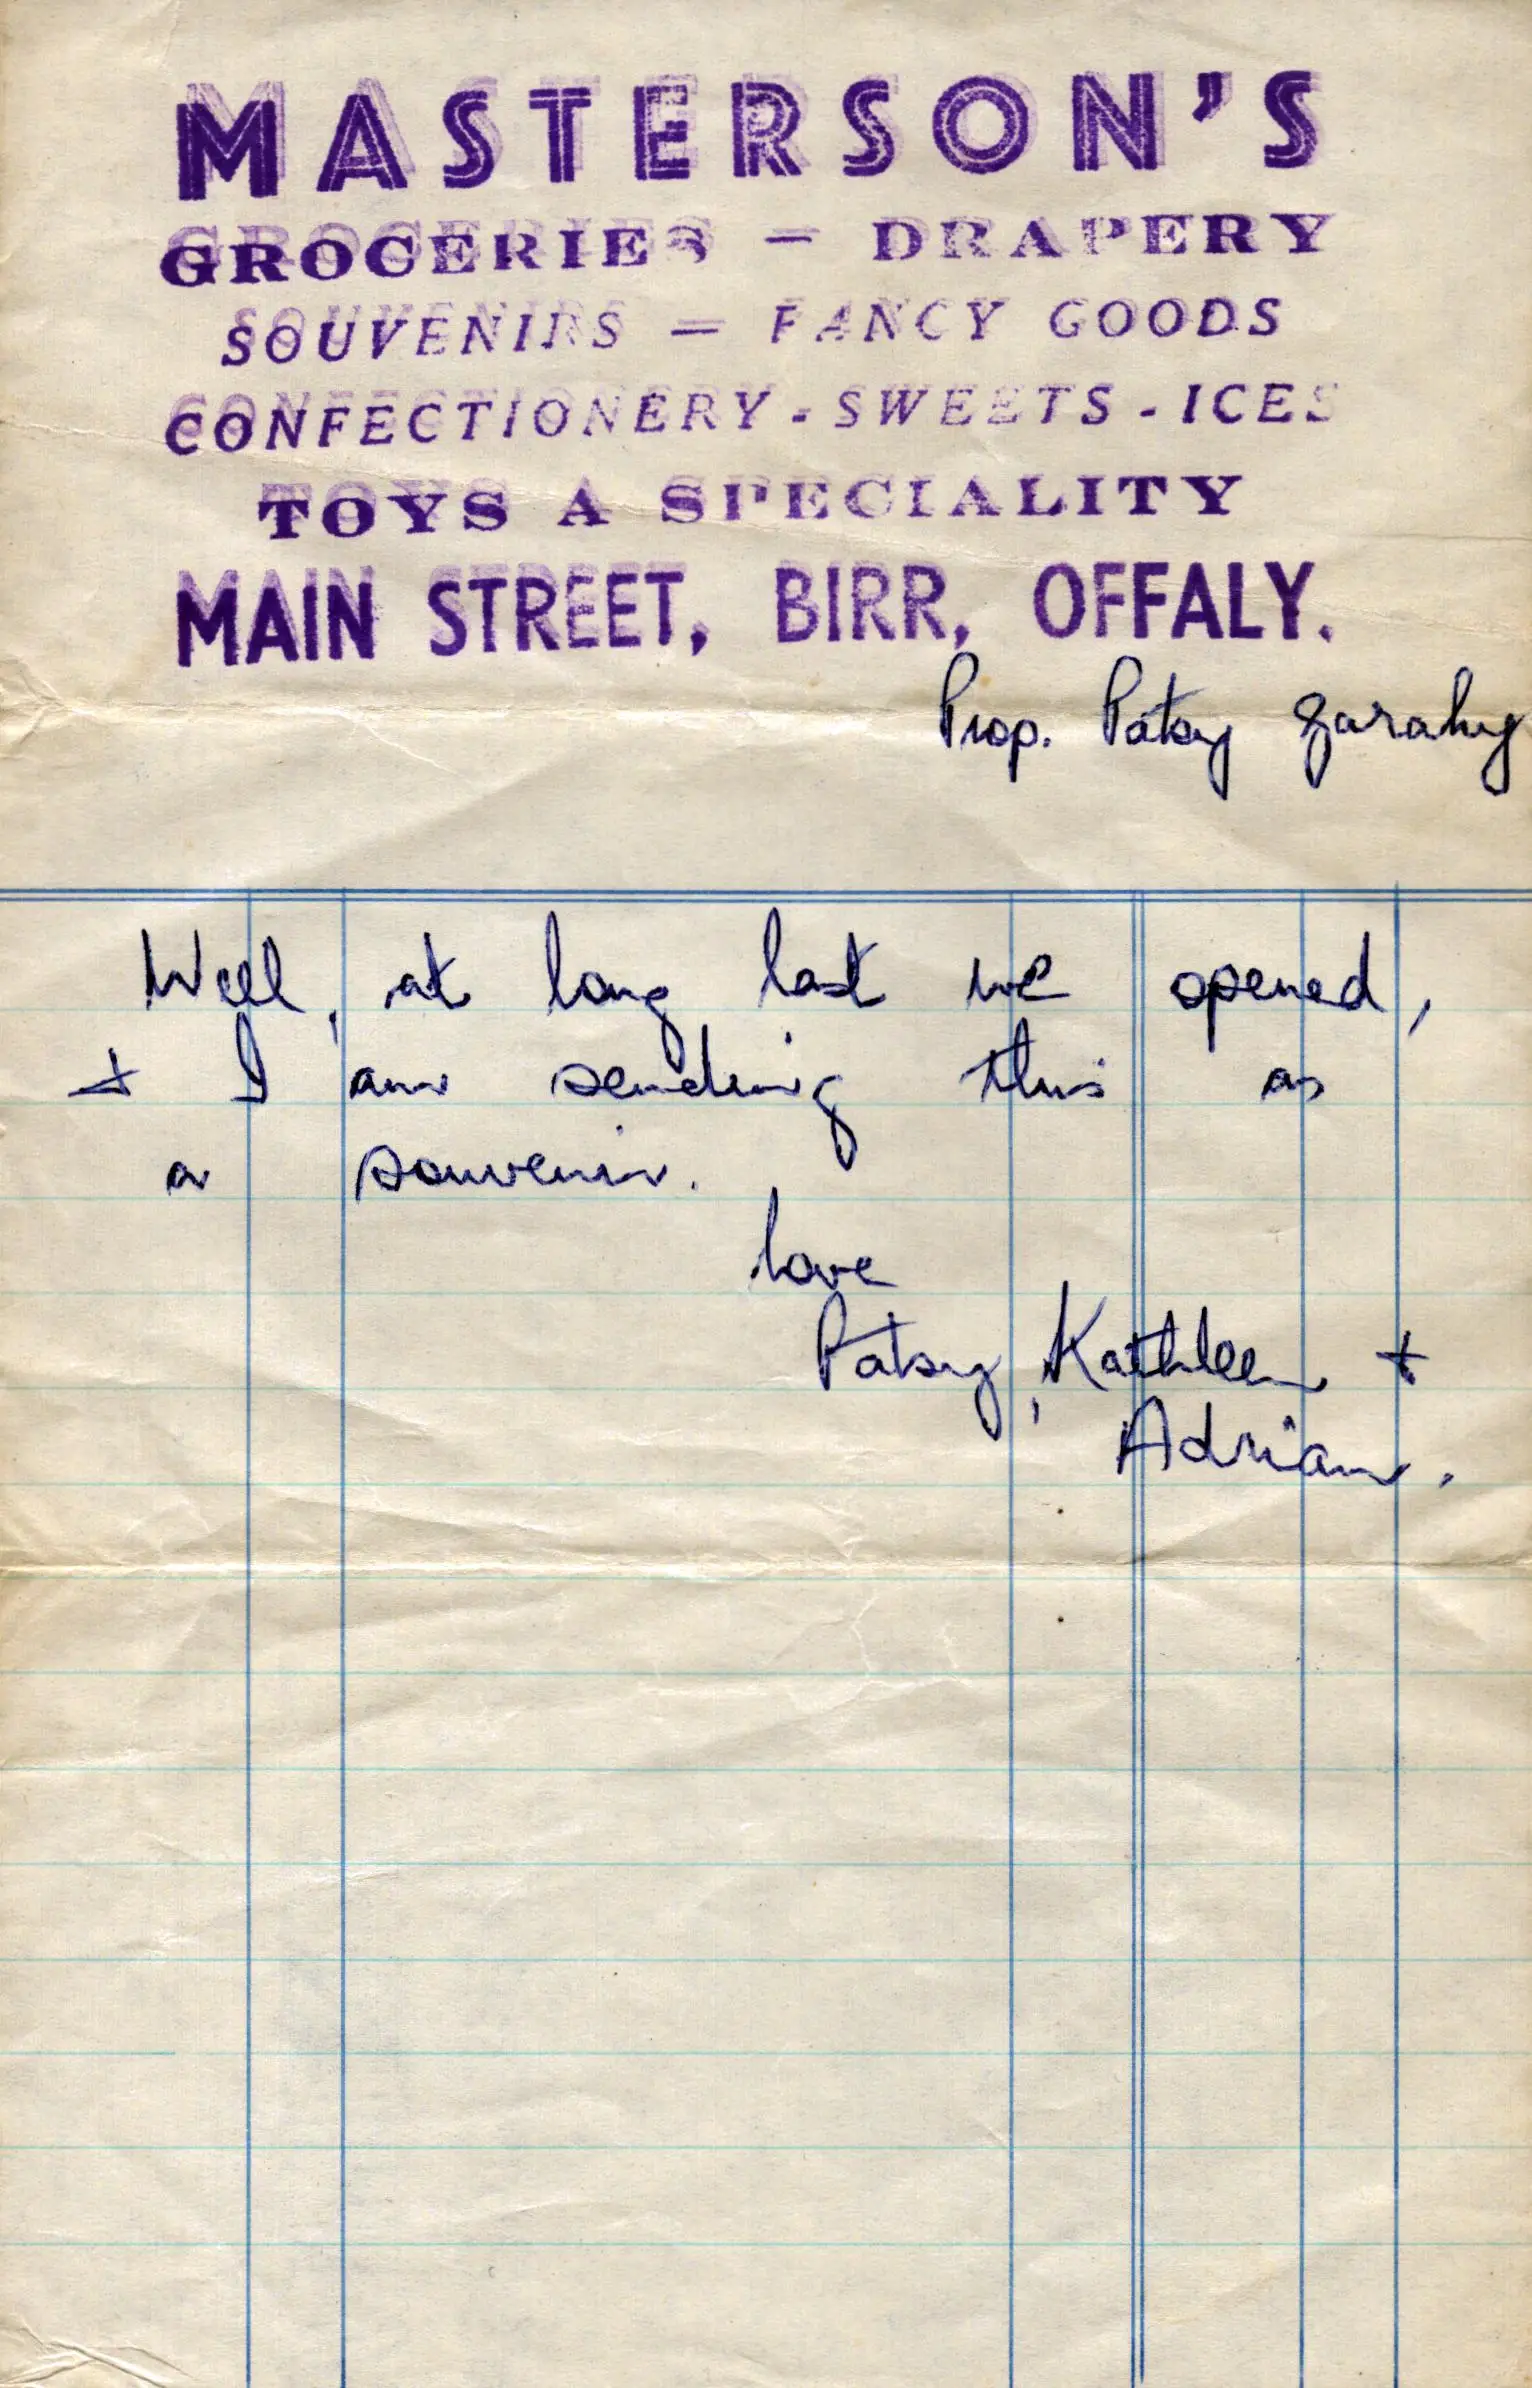 MASTERSON'S
GROCERIES — DRAPERY
SOUVENIRS — FANCY GOODS
CONFECTIONERY - SWEETS - ICES
TOYS A SPECIALITY
MAIN STREET, BIRR, OFFALY.
Prop. Patsy Garahy
Well, at long last we opened,
+ I am sending this as
a souvenir.
love
Patsy, Kathleen +
Adrian.